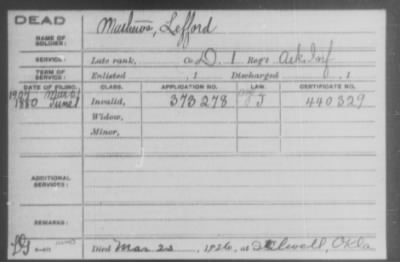 DEAD
NAME OF SOLDIER: Mathews, Lefford
SERVICE: Late rank, Co. D. 1 Reg't Ark. Inf
TERM OF SERVICE: Enlisted , 1 Discharged , 1
DATE OF FILING. CLASS. APPLICATION NO. LAW. CERTIFICATE NO.
1880 June 1 Invalid, 373278 J 440329
Widow,
Minor,
ADDITIONAL SERVICES:
REMARKS:
Died Mar 23, 1926, at Stilwell, Okla